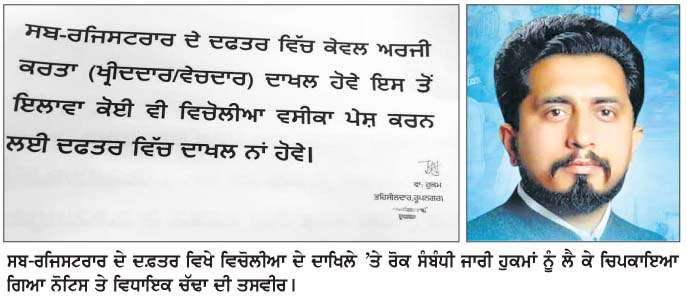 ਸਬ-ਰਜਿਸਟਰਾਰ ਦੇ ਦਫਤਰ ਵਿੱਚ ਕੇਵਲ ਅਰਜੀ
ਕਰਤਾ (ਖ੍ਰੀਦਦਾਰ/ਵੇਚਦਾਰ) ਦਾਖਲ ਹੋਵੇ ਇਸ ਤੋਂ
ਇਲਾਵਾ ਕੋਈ ਵੀ ਵਿਚੋਲੀਆ ਵਸੀਕਾ ਪੇਸ਼ ਕਰਨ
ਲਈ ਦਫਤਰ ਵਿੱਚ ਦਾਖਲ ਨਾਂ ਹੋਵੇ।
ਵਾ: ਹੁਕਮ
ਤਹਿਸੀਲਦਾਰ, ਰੂਪਨਗਰ।
ਸਬ-ਰਜਿਸਟਰਾਰ ਦੇ ਦਫ਼ਤਰ ਵਿਖੇ ਵਿਚੋਲੀਆ ਦੇ ਦਾਖਿਲੇ ’ਤੇ ਰੋਕ ਸੰਬੰਧੀ ਜਾਰੀ ਹੁਕਮਾਂ ਨੂੰ ਲੈ ਕੇ ਚਿਪਕਾਇਆ
ਗਿਆ ਨੋਟਿਸ ਤੇ ਵਿਧਾਇਕ ਚੱਢਾ ਦੀ ਤਸਵੀਰ।